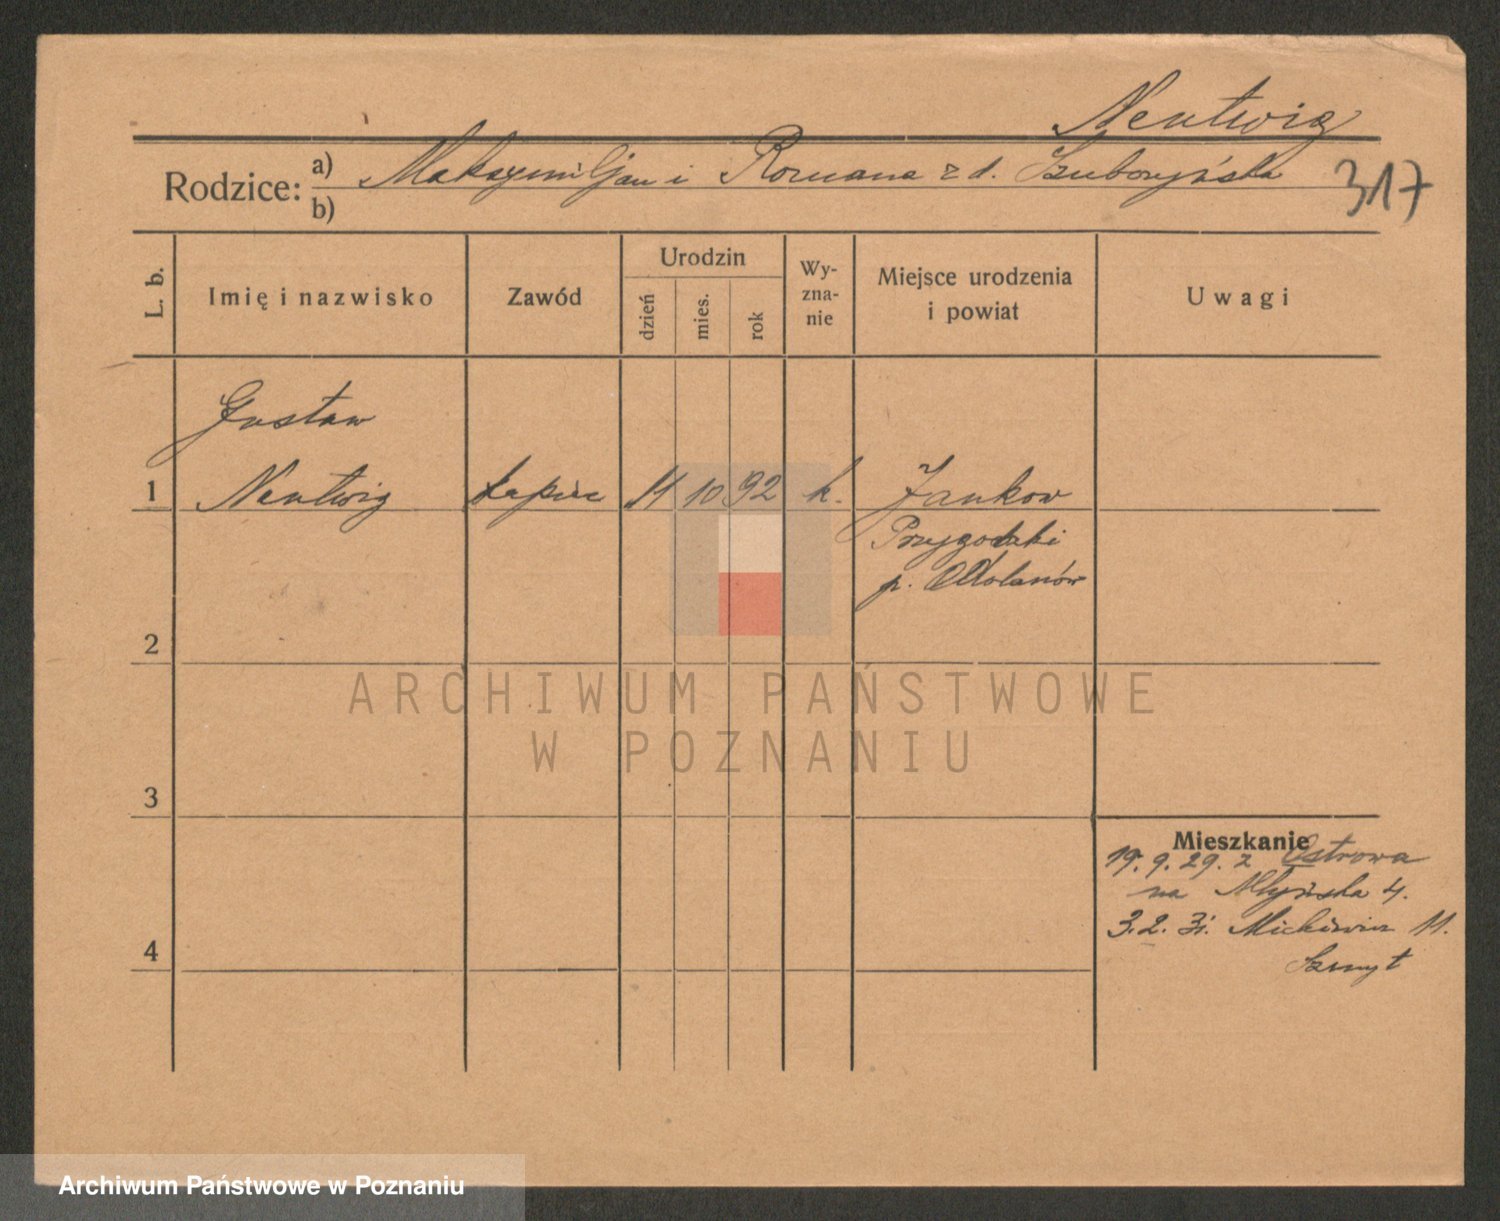 Nentwig
Rodzice: a) Maksymiljan i Romana z d. Szuboryńska
b)
317
L. b.
Imię i nazwisko
Zawód
Urodzin
dzień
mies.
rok
Wy-
zna-
nie
Miejsce urodzenia
i powiat
Uwagi
Gustaw
1 Nentwig kupiec 11 10 92 k. Jankow
Przygodzki
p. Odolanów
2
ARCHIWUM PAŃSTWOWE
W POZNANIU
3
Mieszkanie
19.9.29. z Ostrowa
na Młyńska 4.
3.2.31. Mickiewicz 11.
4
Szmyt
Archiwum Państwowe w Poznaniu